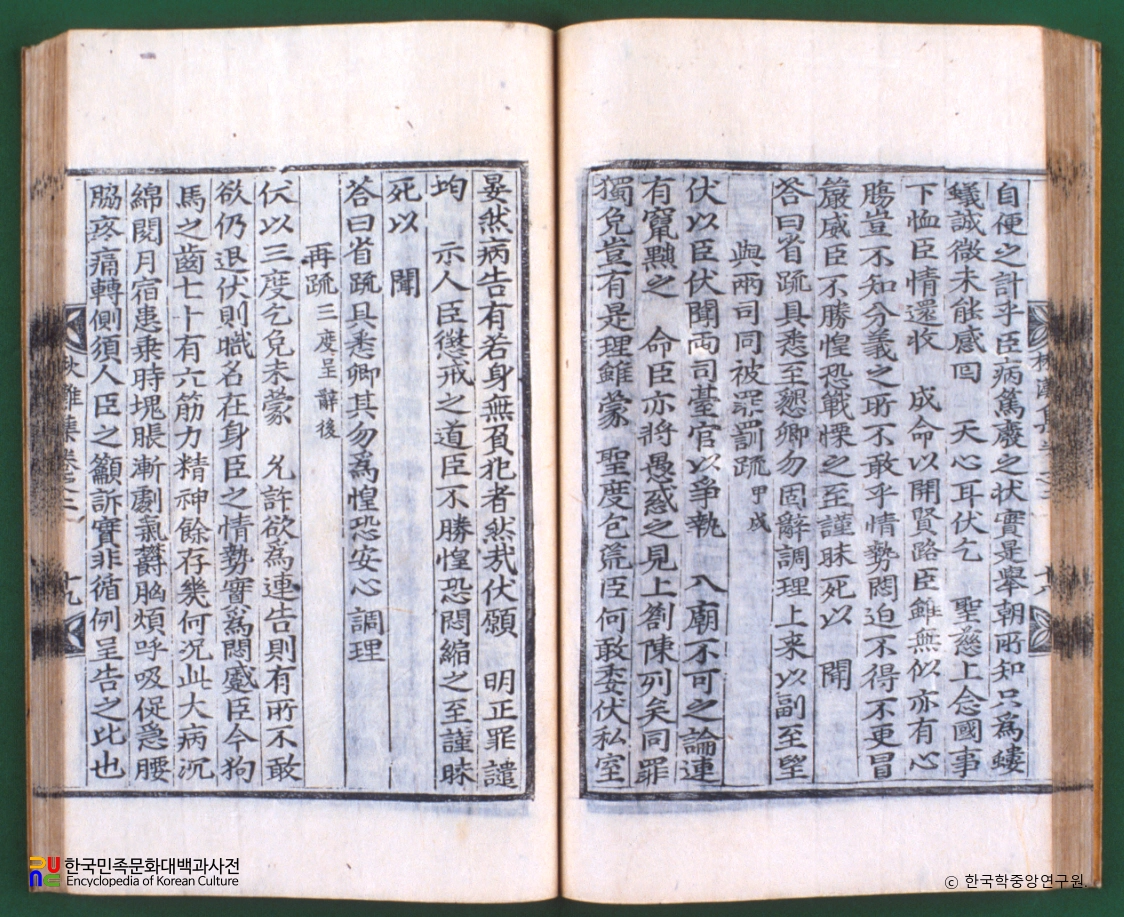 自便之計乎臣病篤廢之狀實是擧朝所知只爲螻
蟻誠微未能感回 天心耳伏乞 聖慈上念國事
下恤臣情還收 成命以開賢路臣雖無似亦有心
膓豈不知分義之所不敢乎情勢悶迫不得不更冒
嚴威臣不勝惶恐戰慄之至謹昧死以 聞
答曰省䟽具悉至懇卿勿固辭調理上来以副至望
與兩司同被罪罰䟽 甲戌
伏以臣伏聞兩司臺官以爭執 入廟不可之論連
有竄黜之 命臣亦將愚惑之見上劄陳列矣同罪
獨免豈有是理雖蒙 聖度包荒臣何敢委伏私室
十八
晏然病告有若身無負犯者然㢤伏願 明正罪譴
均 示人臣懲戒之道臣不勝惶恐悶縮之至謹昧
死以 聞
答曰省䟽具悉卿其勿爲惶恐安心調理
再䟽 三度呈辭後
伏以三度乞免未蒙 允許欲為連告則有所不敢
欲仍退伏則職名在身臣之情勢實爲悶蹙臣今狗
馬之齒七十有六筋力精神餘存幾何况此大病沉
綿閱月宿患乗時塊脹漸劇氣欝胸煩呼吸促急腰
脇疼痛轉側須人臣之籲訴實非循例呈告之比也
楸灘集卷之三
十九
한국민족문화대백과사전
Encyclopedia of Korean Culture
© 한국학중앙연구원